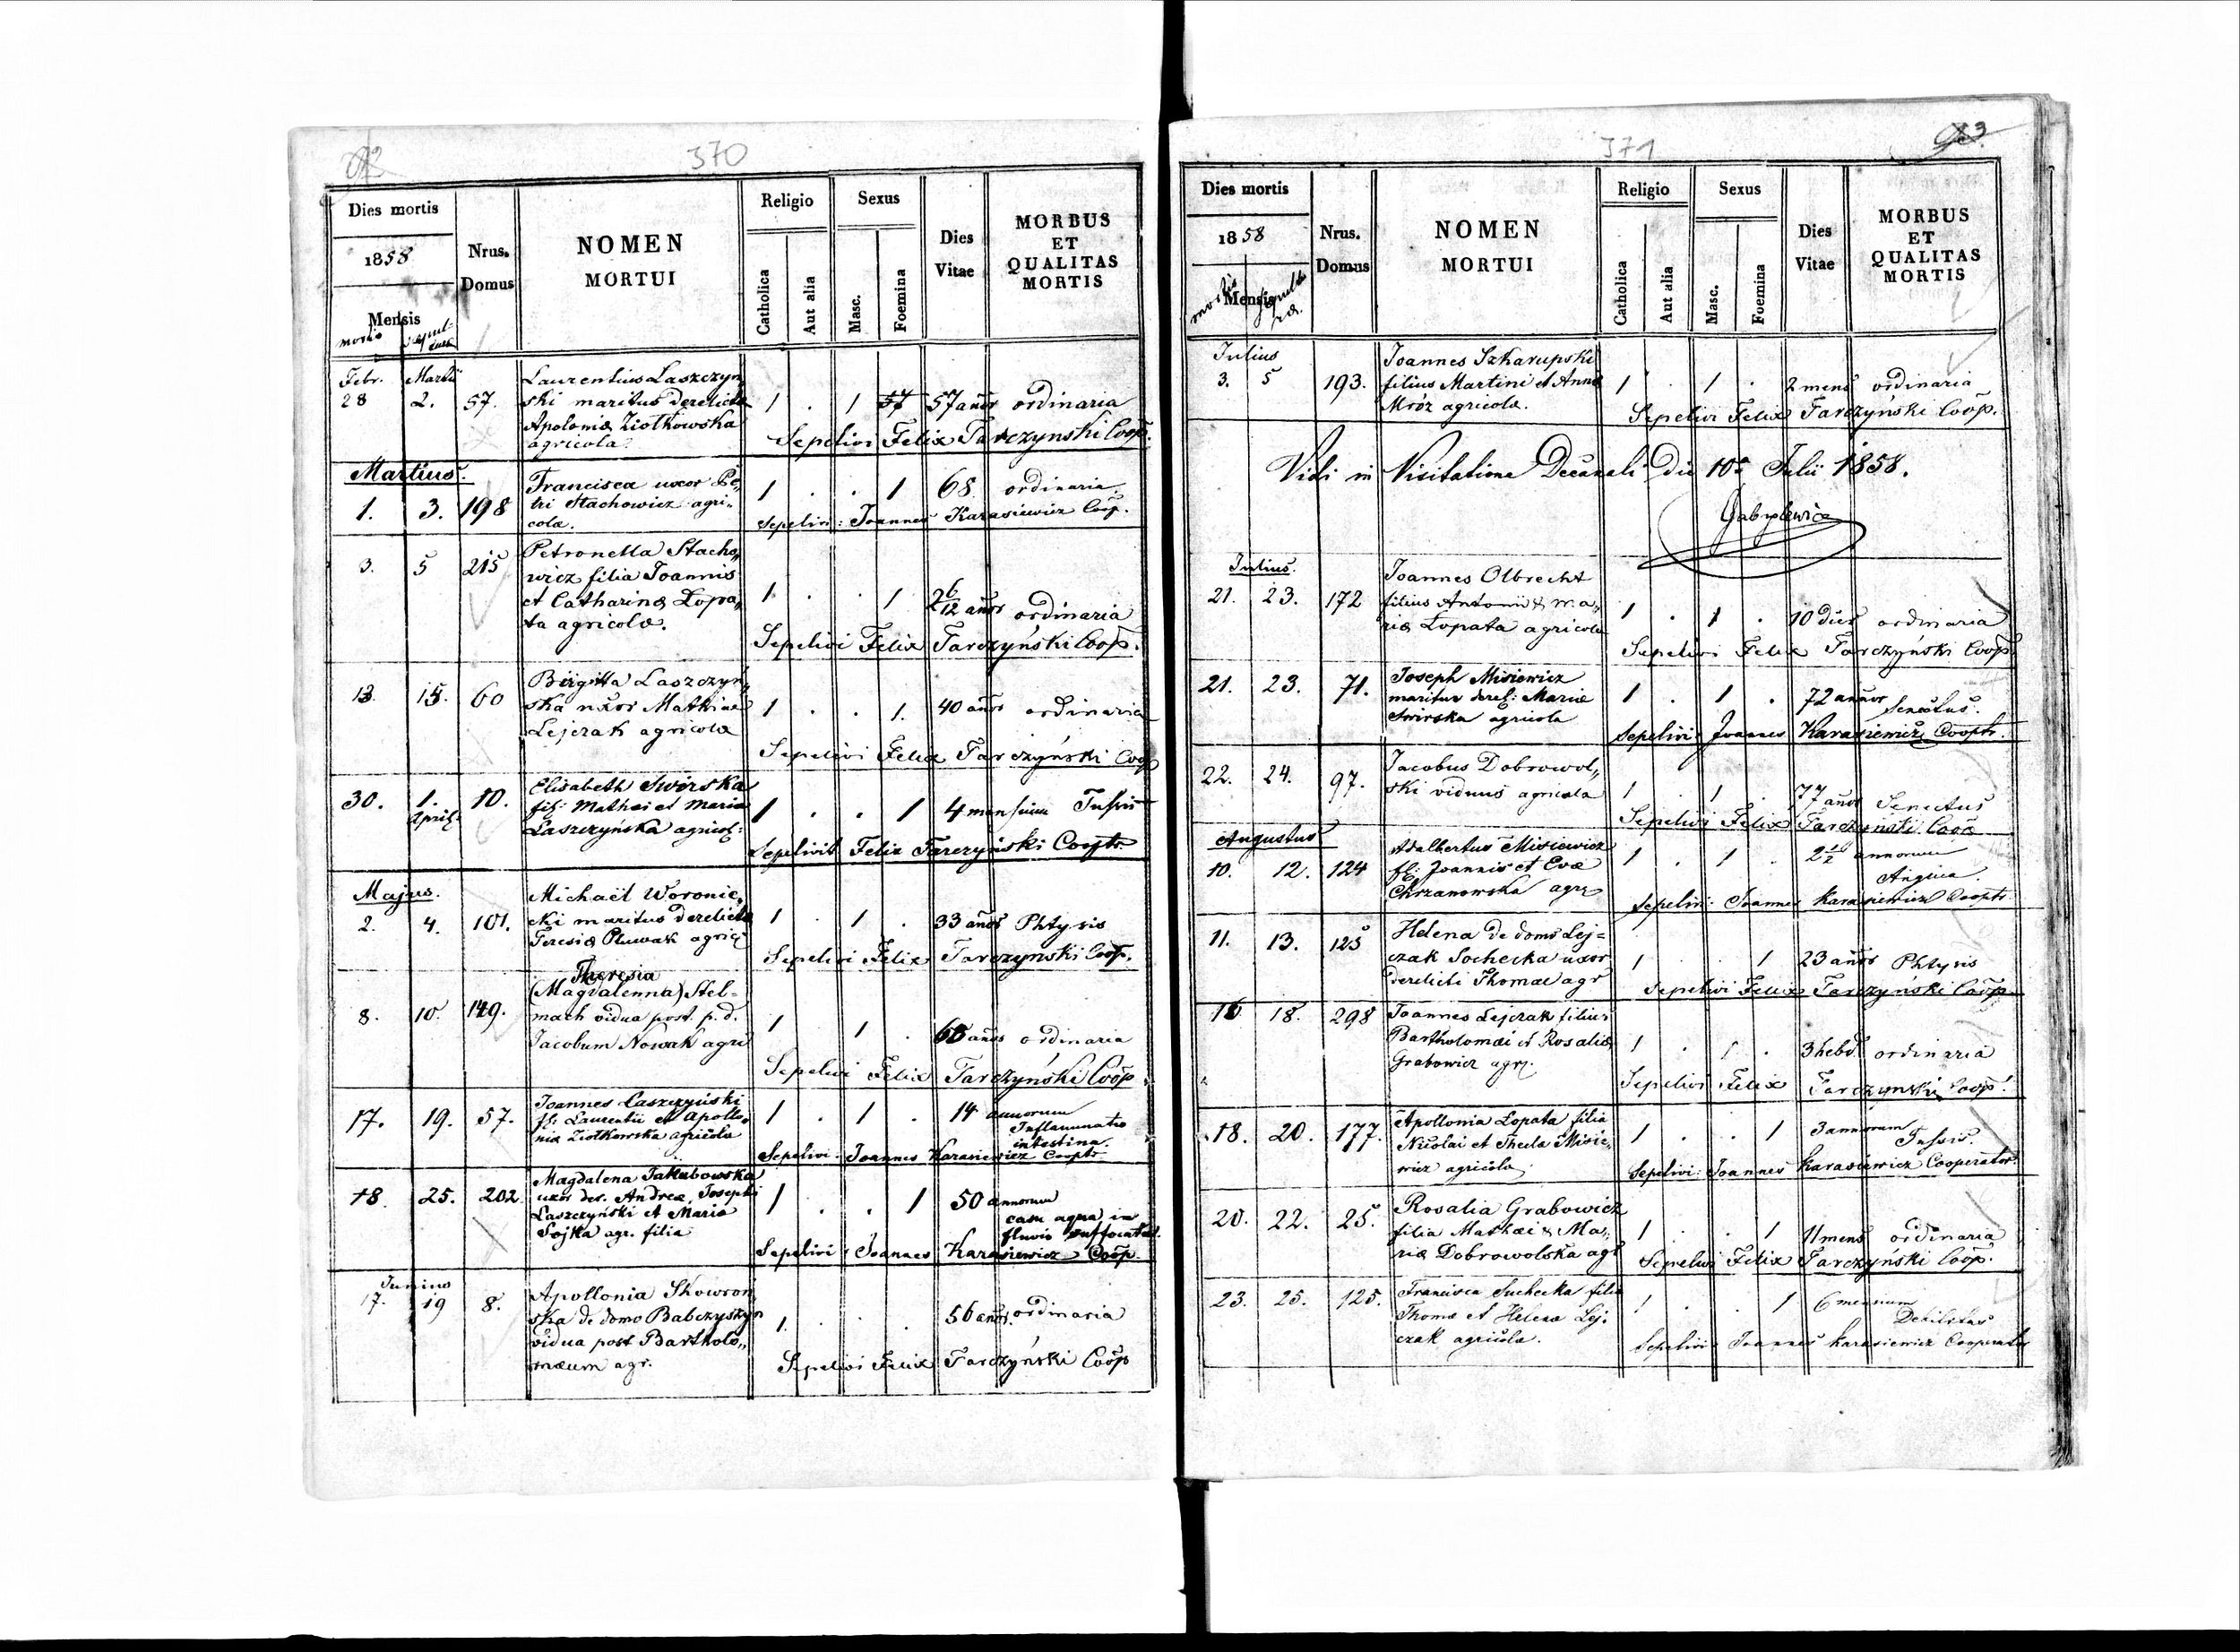 370
Dies mortis
1858
Mensis
mortis
Nrus.
Domus
NOMEN
MORTUI
Religio
Catholica
Aut alia
Sexus
Masc.
Foemina
Dies
Vitae
MORBUS
ET
QUALITAS
MORTIS
Febr. Martii
28 2. 57.
Laurentius Laszczyn„
ski maritus derelictæ
Apoloniæ Ziotkowska
agricola.
1 . 1 57 57 añor ordinaria
Sepelivi Felix Tarczynski Coop.
Martius.
1. 3. 198
Francisca uxor Pe„
tri Stachowicz agri„
colæ.
1 . . 1 68 ordinaria
Sepelivi: Joannes Karasiewicz Coop.
3. 5 215
Petronella Stacho„
wicz filia Joannis
et Catharinæ Łopa„
ta agricolæ.
1 . . 1 2 6/12 añor ordinaria
Sepelivi Felix Tarczyński Coop.
13. 15. 60
Birgitta Laszczyń„
ska uxor Mathiæ
Lejczak agricolæ
1 . . 1. 40 añor ordinaria
Sepelivi Felix Tarczyński Coop
30. 1. Aprilis 10.
Elisabeth Swirska
fil: Mathæi et Mariæ
Laszczyńska agricol:
1 . . 1 4 mensium Tussis
Sepelivit Felix Tarczyński Cooptr.
Majus.
2. 4. 101.
Michaël Woronic„
ki maritus derelictæ
Teresiæ Pluwak agric
1 . 1 . 33 añor Phtysis
Sepelivi Felix Tarczynski Coop.
8. 10. 149.
Theresia
(Magdalenna) Stel=
mach vidua post. p. d.
Jacobum Nowak agri
1 1 . añor ordinaria
Sepelivi Felix Tarczyński Coop
17. 19. 57.
Joannes Laszczyński
fil: Laurentii et Apollo„
niæ Ziotkowska agricola
1 . 1 . 14 annorum
Inflammatio
intestina.
Sepelivi: Joannes Karasiewicz Cooptr.
18. 25. 202
Magdalena Jakubowska
uxor der. Andreæ, Josephi
Laszczyński et Maria
Sojka agr. filia
1 . . 1 50 annorum
casu aqua in
fluvio suffocata.
Sepelivi: Joannes Karasiewicz Coop.
Junius
17. 19 8.
Apollonia Skowroń„
ska de domo Babczyszyn
vidua post Bartholo„
mæum agr.
1. . . 56 añor. ordinaria
Sepelivi Felix Tarczyński Coop
371
93.
Dies mortis
1858
Mensis
mortis
Nrus.
Domus
NOMEN
MORTUI
Religio
Catholica
Aut alia
Sexus
Masc.
Foemina
Dies
Vitae
MORBUS
ET
QUALITAS
MORTIS
Julius
3. 5 193.
Joannes Szkarupski
filius Martini et Annæ
Mróz agricolæ.
1 . 1 . 2 mens ordinaria
Sepelivi Felix Tarczyński Coop.
Vidi in Visitatione Decanali die 10 Julii 1858.
Julius.
21. 23. 172
Joannes Olbrecht
filius Antonii & Ma„
riæ Łopata agricolæ
1 . 1 . 10 dier ordinaria
Sepelivi Felix Tarczyński Coop.
21. 23. 71.
Joseph Misiewicz
maritus derel: Mariæ
Swirska agricola
1 . 1 . 72 annor Senectus.
Sepelivi: Joannes Karasiewicz Cooptr.
22. 24. 97.
Jacobus Dobrowol„
ski viduus agricola
1 . 1 . 77 añor Senectus
Sepelivi Felix Tarczyński Coop
Augustus
10. 12. 124
Adalbertus Misiewicz
fil: Joannis et Evæ
Chrzanowska agr
1 . 1 . 2 1/2 annorum
Angina.
Sepelivi: Joannes Karasiewicz Cooptr.
11. 13. 125
Helena de domo Lej=
czak Sochecka uxor
derelicti Thomæ agr
1 . . 1 23 añor Phtysis
Sepelivi Felix Tarczyński Coop.
16 18. 298
Joannes Lejczak filius
Bartholomæi et Rosaliæ
Grabowicz agr.
1 . 1 . 3 hebd ordinaria
Sepelivi Felix Tarczynski Coop.
18. 20. 177.
Apollonia Łopata filia
Nicolai et Thecla Misie„
wicz agricola
1 . . 1 3 annorum
Tussis.
Sepelivi: Joannes Karasiewicz Cooperator.
20. 22. 25.
Rosalia Grabowicz
filia Mathæi & Ma„
riæ Dobrowolska agr
1 . . 1 11 mens ordinaria
Sepelivi Felix Tarczyński Coop.
23. 25. 125.
Francisca Suchecka filia
Thomæ et Helena Lej„
czak agricola.
1 . . 1 6 mensium
Debilitas
Sepelivi: Joannes Karasiewicz Cooperator